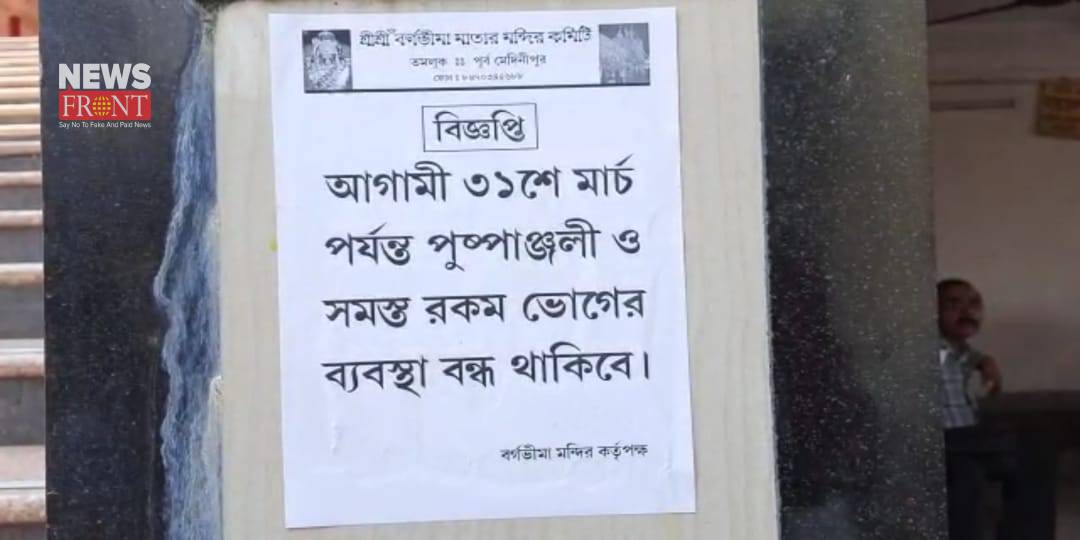 NEWS
FRONT
Say No To Fake And Paid News
শ্রীশ্রী বর্গভীমা মাতার মন্দির কমিটি
তমলুক ঃঃ পূর্ব মেদিনীপুর
বিজ্ঞপ্তি
আগামী ৩১শে মার্চ
পর্যন্ত পুষ্পাঞ্জলী ও
সমস্ত রকম ভোগের
ব্যবস্থা বন্ধ থাকিবে।
বর্গভীমা মন্দির কর্তৃপক্ষ